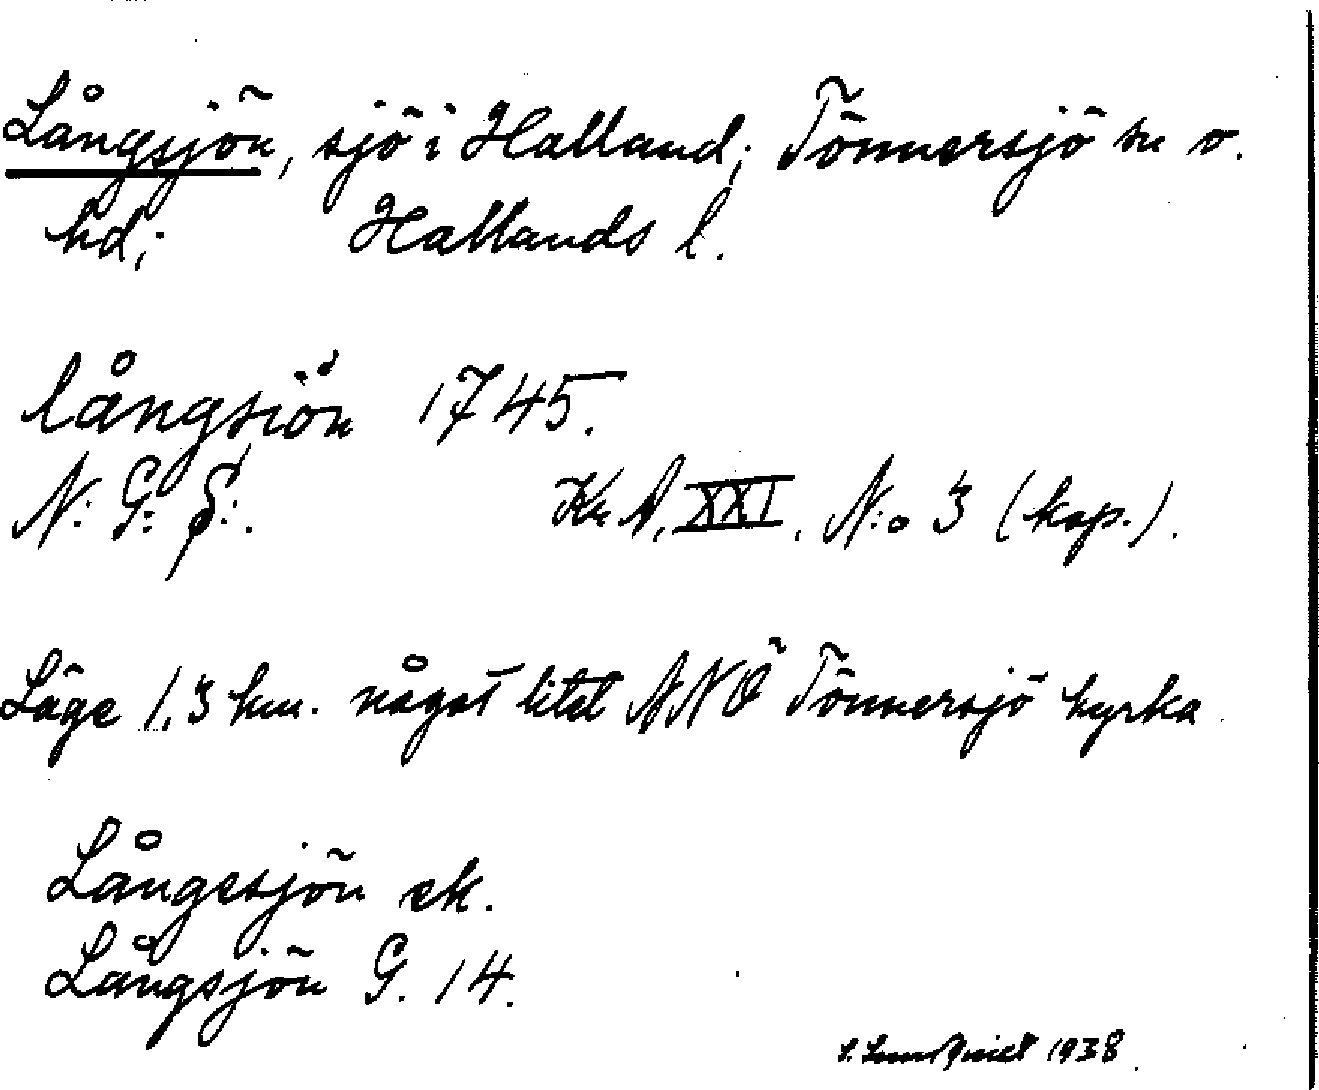 Långsjön, sjö i Halland; Tönnersjö sn o.
hd; Hallands l.
långsiön 1745.
N: G: S:. Kr A, XXI, N:o 3 (kop.).
Läge 1,3 km. något litet NNÖ Tönnersjö kyrka.
Långesjön ek.
Långsjön G. 14.
1938